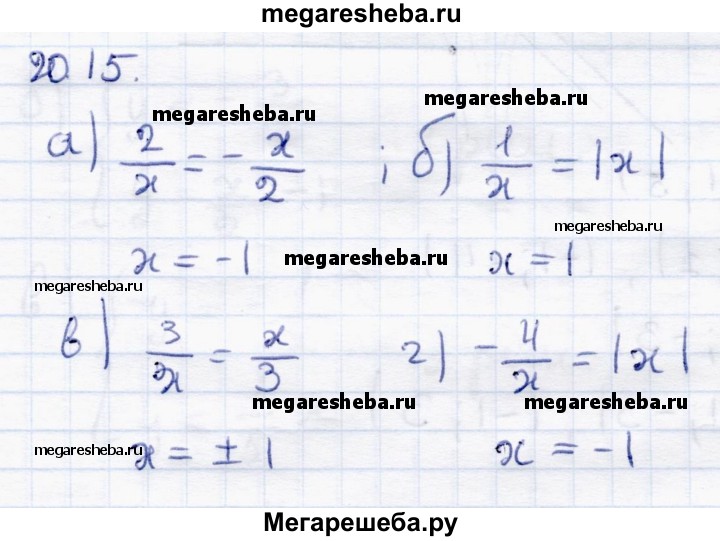 megaresheba.ru
20.15.
megaresheba.ru
megaresheba.ru
а) 2/x = - x/2 ; б) 1/x = |x|
megaresheba.ru
x = -1 megaresheba.ru x = 1
megaresheba.ru
в) 3/x = x/3 г) - 4/x = |x|
megaresheba.ru megaresheba.ru
megaresheba.ru x = ± 1 x = -1 megaresheba.ru
Мегарешеба.ру